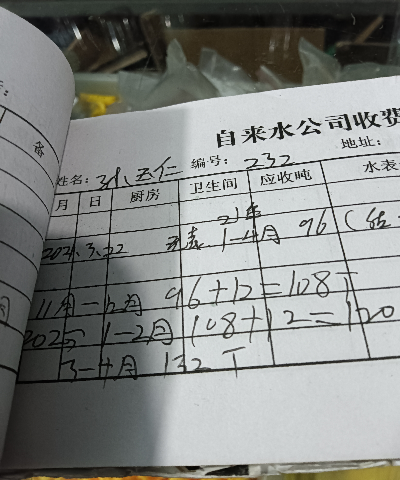 备
自来水公司收费
姓名: 孙五仁 编号: 232 地址:
月 日 厨房 卫生间 应收吨 水表
21年
3.22 1-4月 96
11月-12月 96+12=108T
2025 1-2月 108+12=120
3-4月 132T